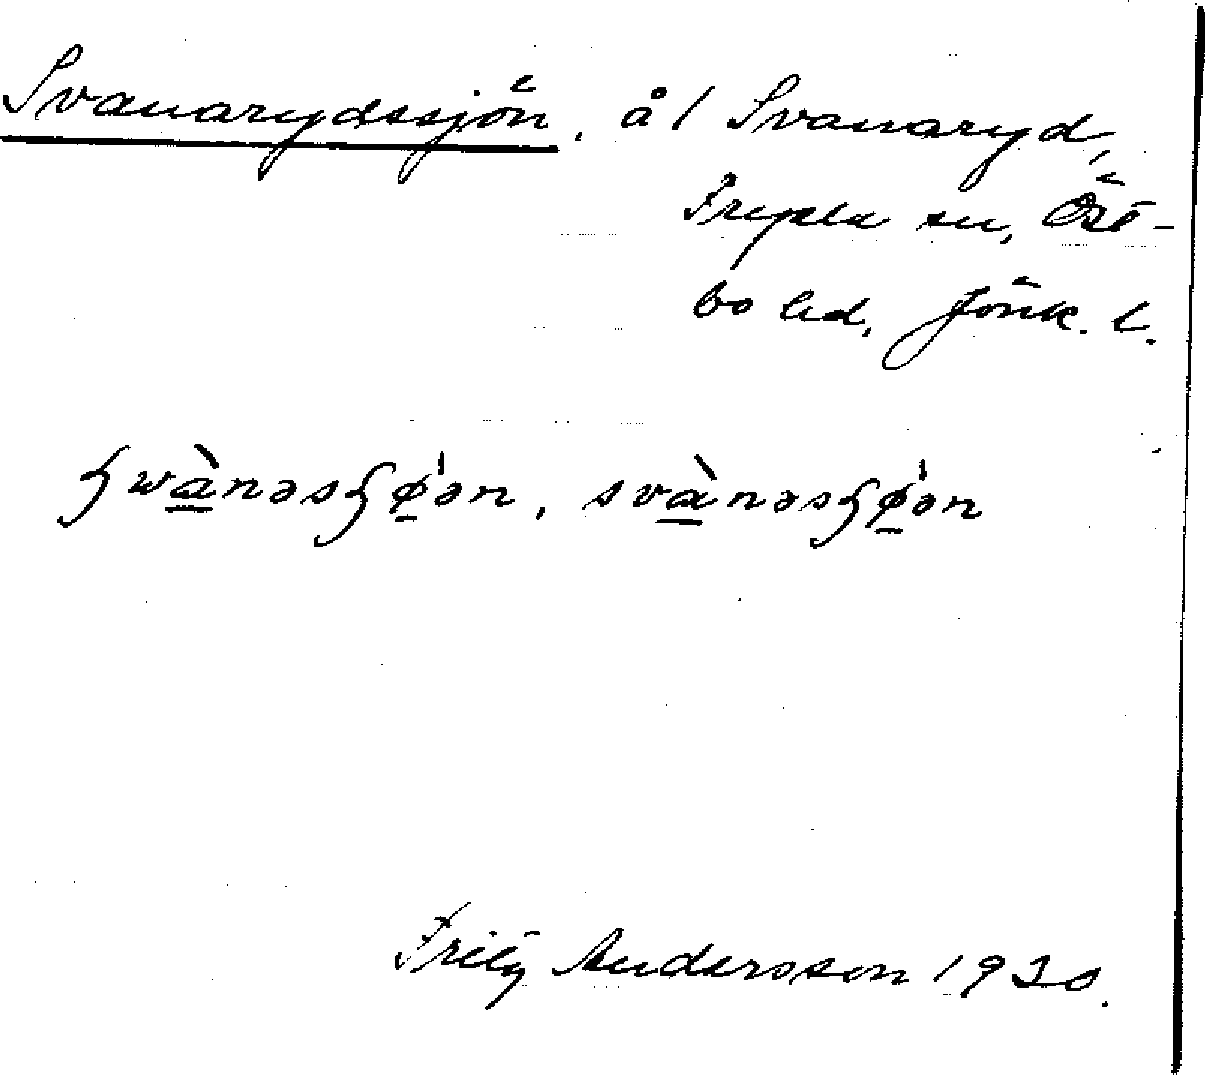 Svanarydssjön, å l Svanaryd,
Fryele sn, Öst-
bo hd, Jönk. l.
ɧwànəsɧø̱̍ən, svànəsɧø̱̍ən
Fritz Andersson 1930.